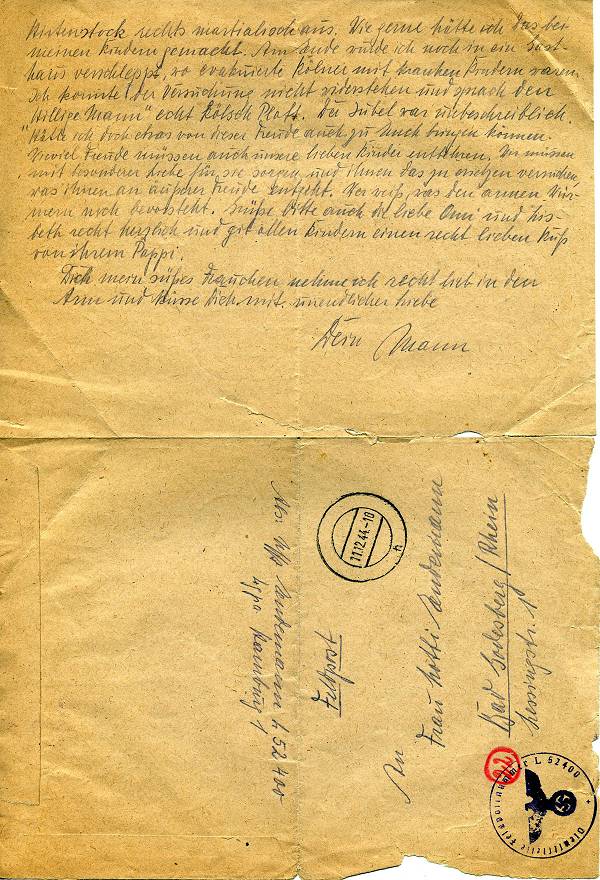 rechts martialisch aus. Wie gerne hätte ich das bei
meinen Kindern gemacht. Am Ende wurde ich noch in ein Gast-
haus verschleppt, wo evakuierte Kölner mit kranken Kindern waren.
Ich konnte der Versuchung nicht widerstehen und sprach den
Mann" echt Kölsch Platt. Der Jubel war unbeschreiblich.
ich doch etwas von dieser Freude auch zu Euch bringen können.
Wieviel Freude müssen auch unsere lieben Kinder entbehren. Wir müssen
mit besonderer Liebe für sie sorgen und ihnen das zu ersetzen versuchen,
was ihnen an äußerer Freude entgeht. Wer weiß, was den armen Wür-
mern noch bevorsteht. Grüße bitte auch die liebe Omi und Lis-
beth recht herzlich und gib allen Kindern einen recht lieben Kuß
von ihrem Pappi.
Dich mein süßes Frauchen nehme ich recht lieb in den
Arm und küsse Dich mit unendlicher Liebe
Dein Mann
An
Frau
Bad Godesberg / Rhein
Lessingstr. 1
Feldpost
11.12.44-10
h
Abs. Uffz L 52400
Hamburg 1
Dienststelle Feldpostnummer L 52400